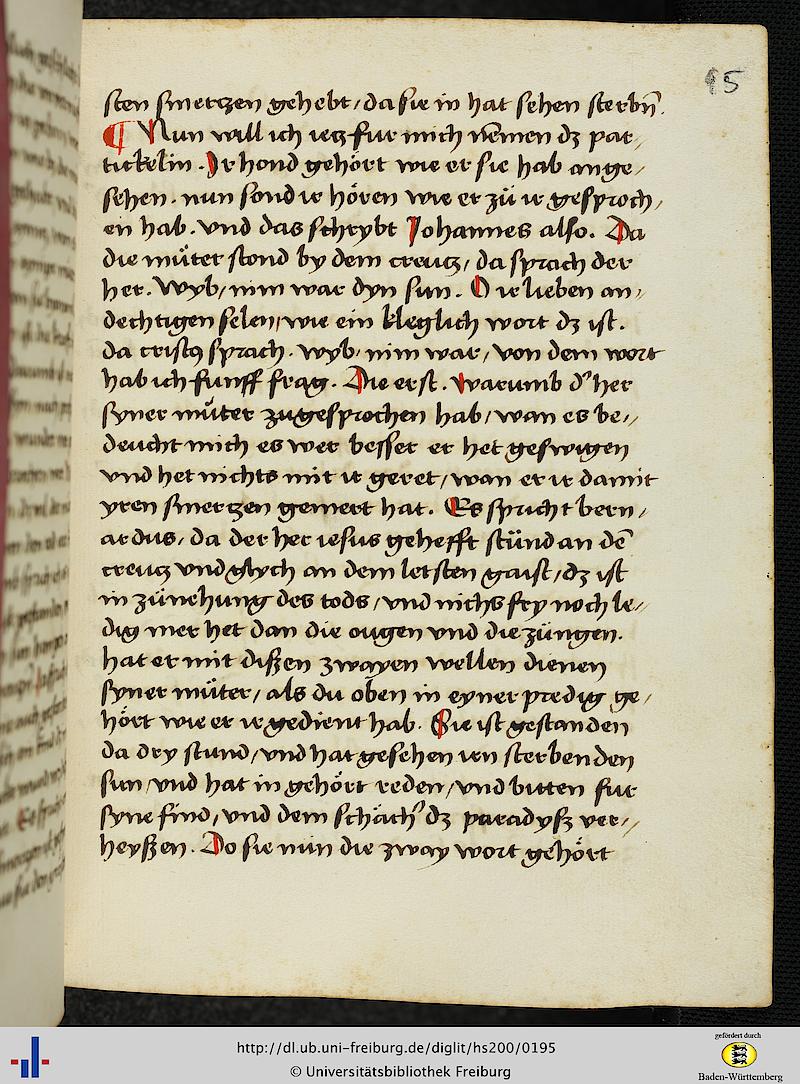 95
sten smertzen gehebt / da sie in hat sehen sterbn̄.
¶ Nun will ich ietz fur mich nēmen dz par⸗
tickelin. Ir hond gehört wie er sie hab ange⸗
sehen. nun sond ir hören wie er zů ir gesproch⸗
en hab. vnd das schrybt Johannes also. Da
die můter stond by dem creutz / da sprach der
her. Wyb / nim war dyn sun. O ir lieben an⸗
dechtigen selen / wie ein kleglich wort dz ist.
da cristꝯ sprach. wyb / nim war / von dem wort
hab ich funff frag. Die erst. warumb d’ her
syner můter zugesprochen hab / wan es be⸗
deucht mich es wer besser er het geswigen
vnd het nichts mit ir geret / wan er ir damit
yren smertzen gemert hat. Es spricht bern⸗
ardus / da der her iesus gehefft stůnd an dē
creutz vnd glych an dem letsten gaist / dz ist
in zůnehung des tods / vnd nichs fry noch le⸗
dig mer het dan die ougen vnd die züngen.
hat er mit dißen zwayen wellen dienen
syner můter / als du oben in eyner predig ge⸗
hört wie er ir gedient hab. Sie ist gestanden
da dry stund / vnd hat gesehen iren sterbenden
sun / vnd hat in gehört reden / vnd bitten fur
syne find / vnd dem schäch’ dz paradyß ver⸗
heyßen. Do sie nun die zway wort gehört
http://dl.ub.uni-freiburg.de/diglit/hs200/0195
© Universitätsbibliothek Freiburg
gefördert durch
Baden-Württemberg